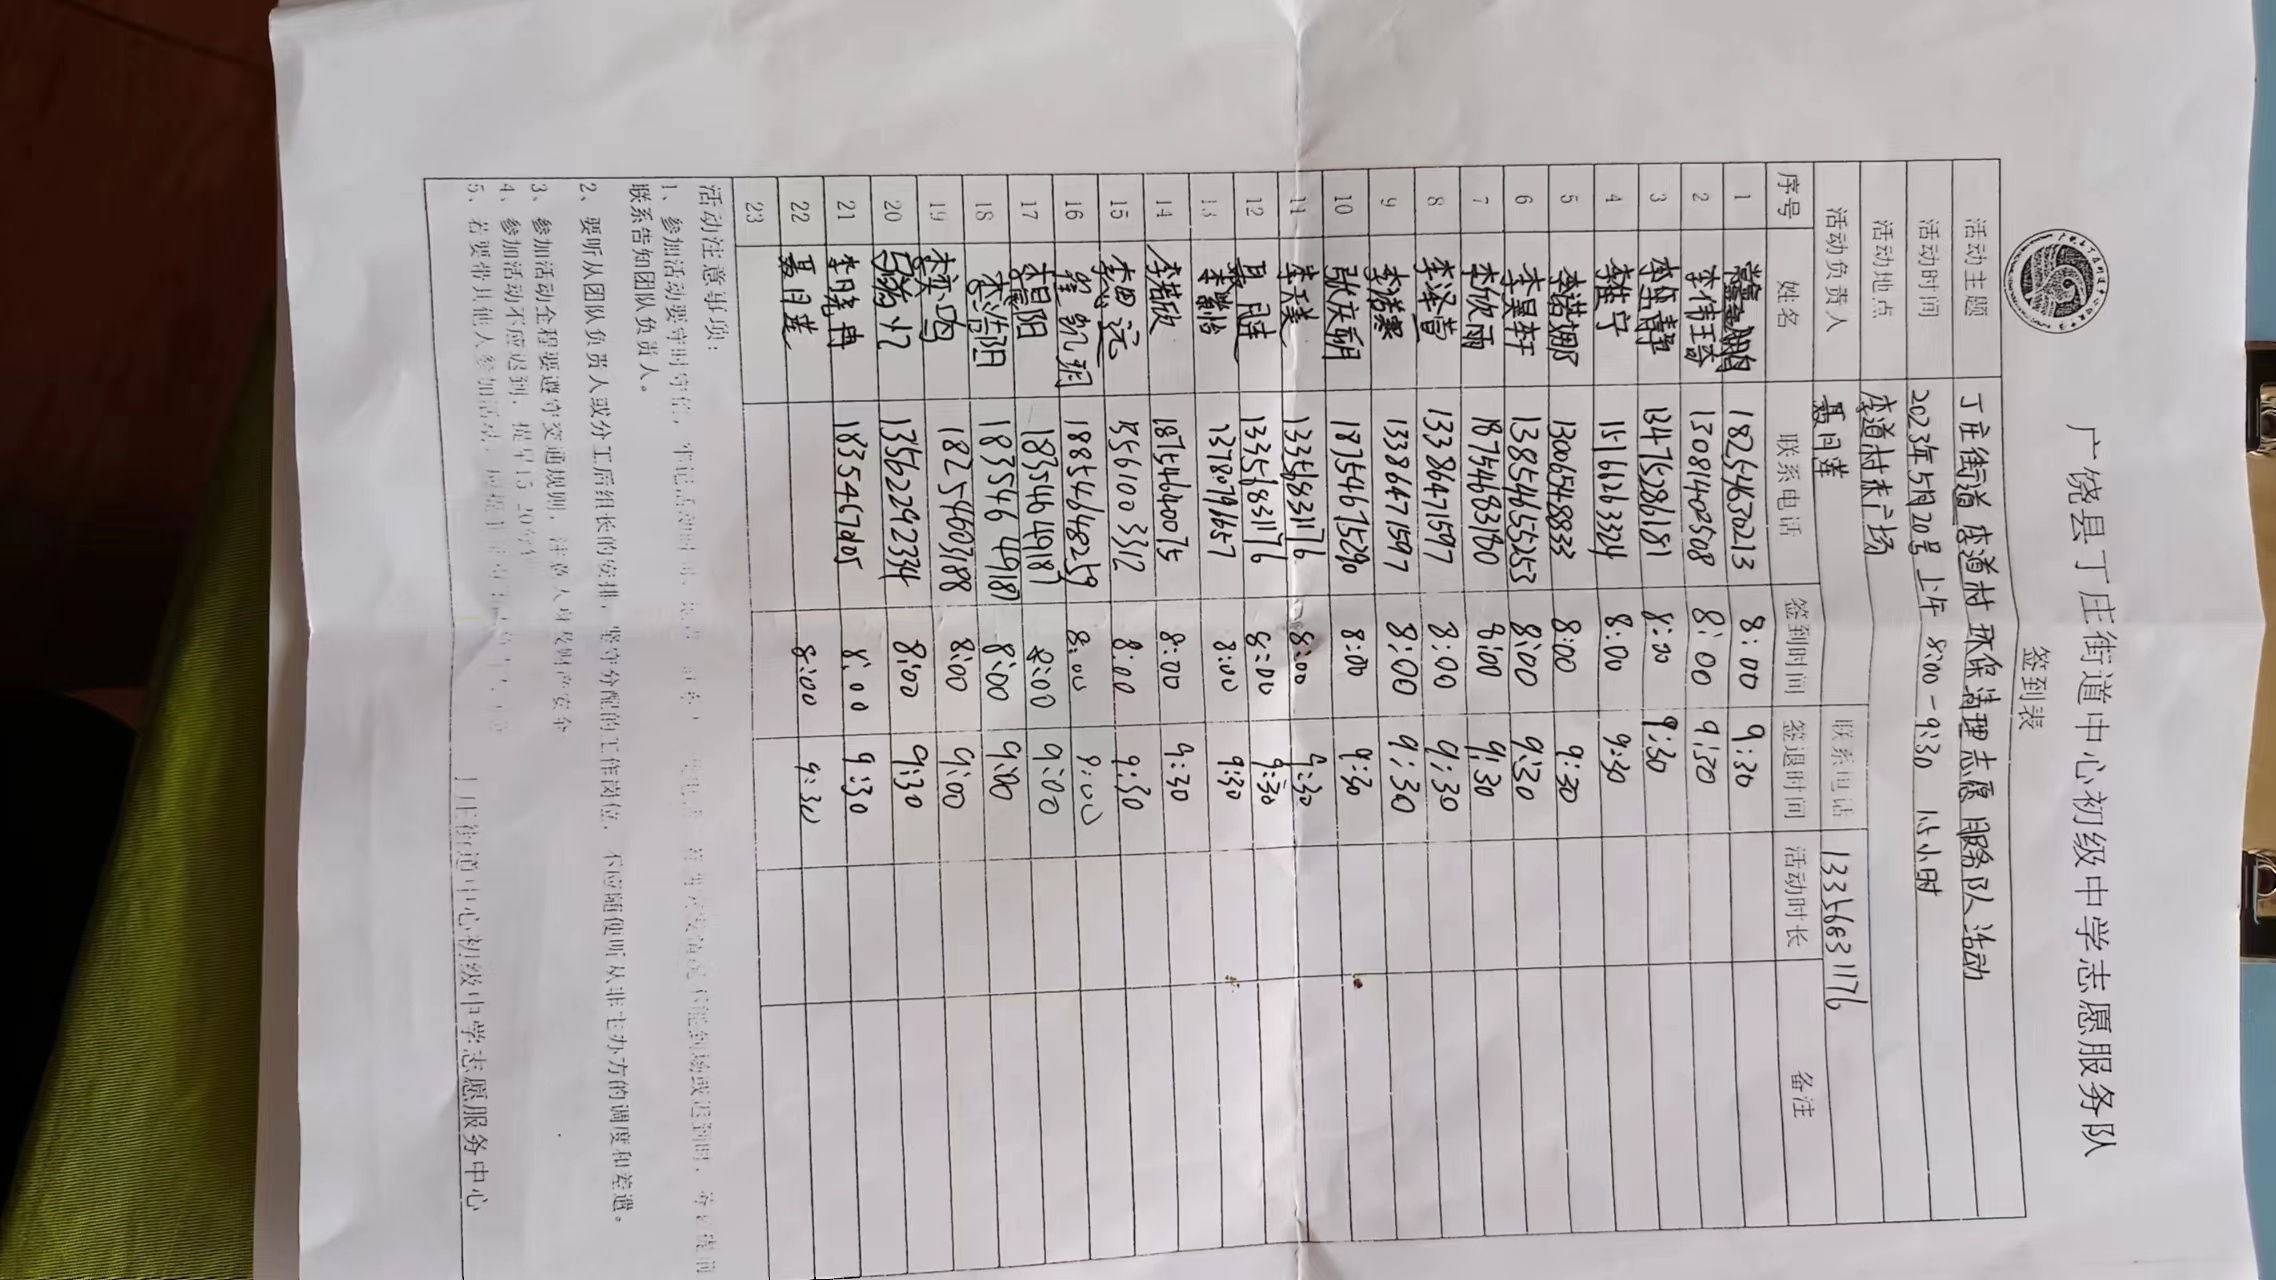 广饶县丁庄街道中心初级中学志愿服务队
签到表
活动主题 丁庄街道李道村环保清理志愿服务队活动
活动时间 2023年5月20号上午 8:00-9:30 1.5小时
活动地点 李道村东广场
活动负责人 聂目莲 联系电话 13356831176
序号 姓名 联系电话 签到时间 签退时间 活动时长 备注
1 18254630213 8:00 9:30
2 李伟琦 13081402508 8:00 9:30
3 李静 13475286181 8:00 9:30
4 李佳宁 15162633324 8:00 9:30
5 李诺娜 13006548833 8:00 9:30
6 李昊轩 13854655253 8:00 9:30
7 李欣雨 18754683180 8:00 9:30
8 李泽萱 13386471597 8:00 9:30
9 13386471597 8:00 9:30
10 张庆朝 18754675290 8:00 9:30
11 李天美 13356831176 8:00 9:30
12 13356831176 8:00 9:30
13 李馨怡 13780796657 8:00 9:30
14 李若欣 18754640075 8:00 9:30
15 李思远 15561003312 8:00 9:30
16 程凯玥 18854648259 8:00 9:00
17 李晨阳 18354649187 8:00 9:00
18 李浩阳 18354649187 8:00 9:00
19 李奕鸣 18254603188 8:00 9:00
20 13562292334 8:00 9:30
21 李晓冉 18354670105 8:00 9:30
22 聂目莲 8:00 9:30
23
活动注意事项:
1、参加活动要守时守信，牢记活动时间
联系告知团队负责人。
2、要听从团队负责人或分工后组长的安排，坚守分配的工作岗位，不应随便听从非主办方的调度和差遣。
3、参加活动全程要遵守交通规则，注意人身及财产安全
4、参加活动不应迟到，提早15-20分钟
5、若要带其他人参加活动，
丁庄街道中心初级中学志愿服务中心